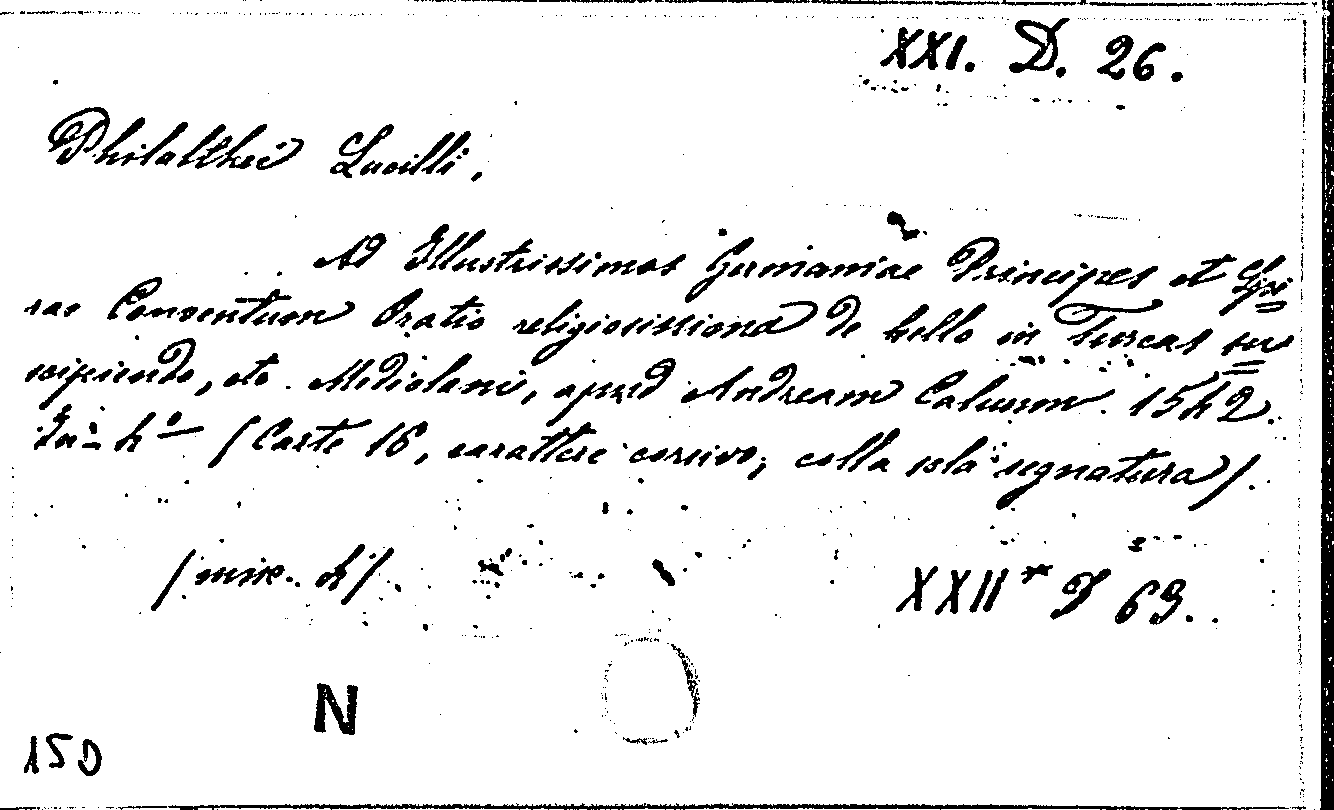 XXI. D. 26.
Philalthei Lucilli.
Ad Illustrissimos Germaniae Principes et Spi
rae Conventum Oratio religiosissima de bello in Turcas sus
scipiendo, etc. Mediolani, apud Andream Calvum. 1542.
In-4º (Carte 16, carattere corsivo, colla sola segnatura).
(misc. 4).
XXII* I 69.
N
15D